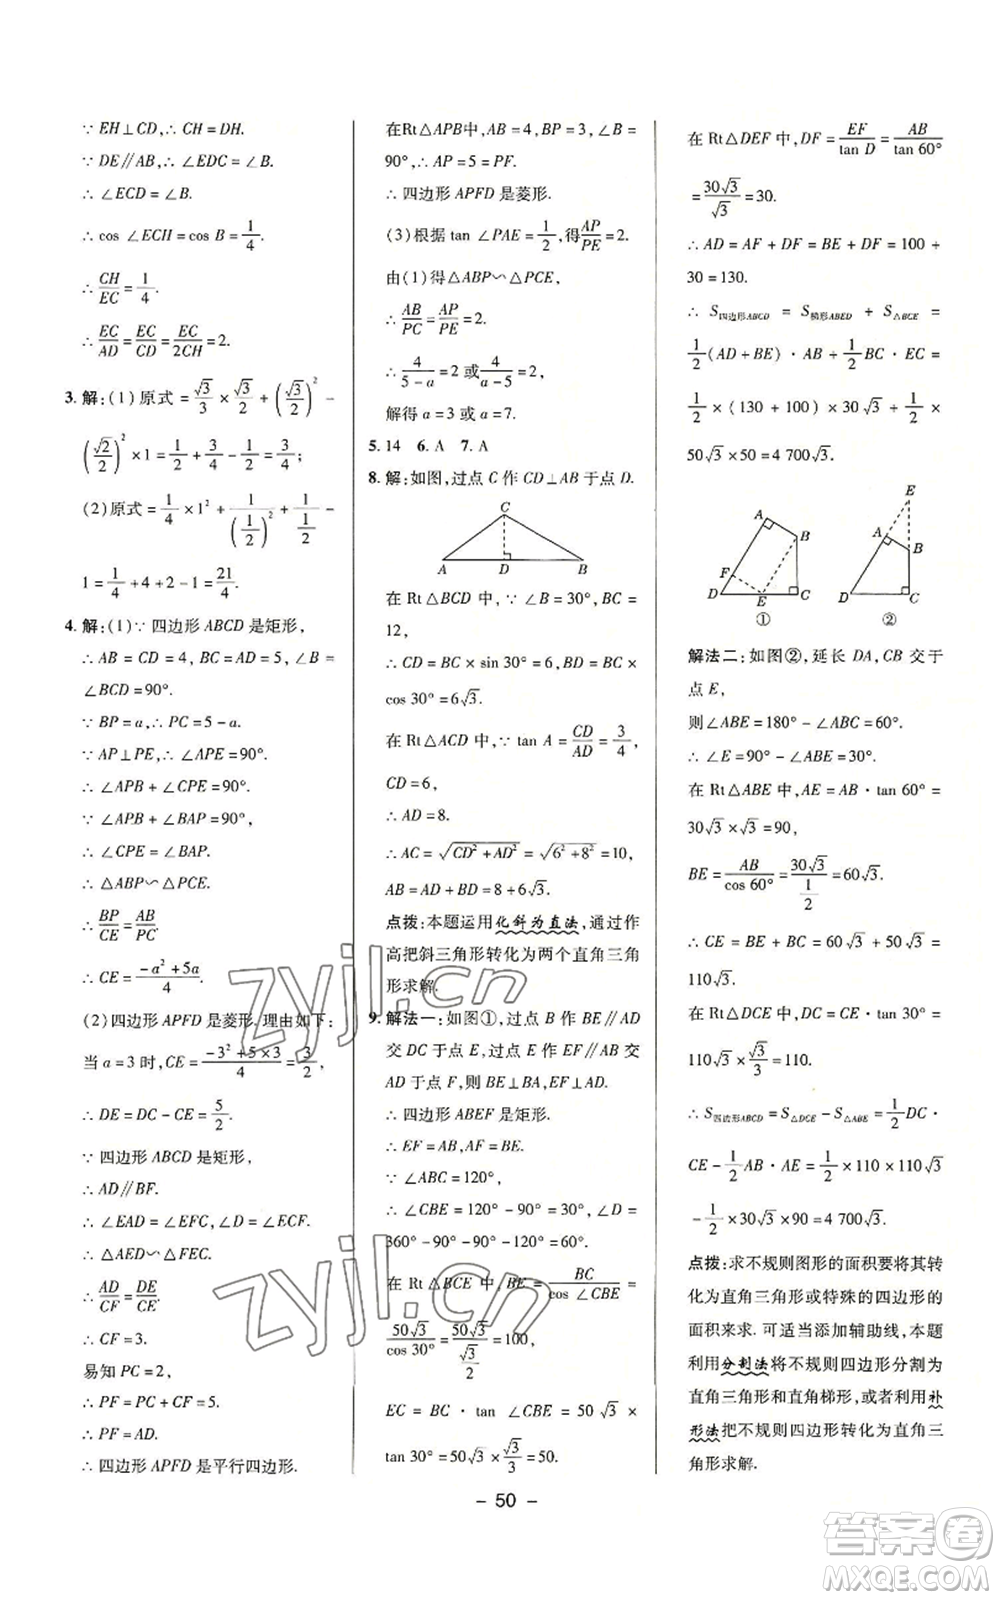 ∵ EH⊥CD,∴ CH = DH.
∵ DE∥AB,∴ ∠EDC = ∠B.
∴ ∠ECD = ∠B.
∴ cos ∠ECH = cos B = 1/4.
∴ CH/EC = 1/4.
∴ EC/AD = EC/CD = EC/2CH = 2.
3. 解:(1)原式 = √3/3 × √3/2 + (√3/2)² -
(√2/2)² × 1 = 1/2 + 3/4 - 1/2 = 3/4;
(2)原式 = 1/4 × 1² + 1/(1/2)² + 1/(1/2) -
1 = 1/4 + 4 + 2 - 1 = 21/4.
4. 解:(1)∵ 四边形 ABCD 是矩形,
∴ AB = CD = 4, BC = AD = 5, ∠B =
∠BCD = 90°.
∵ BP = a,∴ PC = 5 - a.
∵ AP⊥PE,∴ ∠APE = 90°.
∴ ∠APB + ∠CPE = 90°.
∵ ∠APB + ∠BAP = 90°,
∴ ∠CPE = ∠BAP.
∴ △ABP∽△PCE.
∴ BP/CE = AB/PC.
∴ CE = (-a² + 5a)/4.
(2)四边形 APFD 是菱形. 理由如下:
当 a = 3 时, CE = (-3² + 5 × 3)/4 = 3/2,
∴ DE = DC - CE = 5/2.
∵ 四边形 ABCD 是矩形,
∴ AD∥BF.
∴ ∠EAD = ∠EFC, ∠D = ∠ECF.
∴ △AED∽△FEC.
∴ AD/CF = DE/CE.
∴ CF = 3.
易知 PC = 2,
∴ PF = PC + CF = 5.
∴ PF = AD.
∴ 四边形 APFD 是平行四边形.
在Rt△APB中, AB = 4, BP = 3, ∠B =
90°,∴ AP = 5 = PF.
∴ 四边形 APFD 是菱形.
(3)根据 tan ∠PAE = 1/2, 得 AP/PE = 2.
由(1)得△ABP∽△PCE,
∴ AB/PC = AP/PE = 2.
∴ 4/(5 - a) = 2 或 4/(a - 5) = 2,
解得 a = 3 或 a = 7.
5. 14 6. A 7. A
8. 解:如图,过点 C 作 CD⊥AB 于点 D.
C
A D B
在 Rt△BCD 中,∵ ∠B = 30°, BC =
12,
∴ CD = BC × sin 30° = 6, BD = BC ×
cos 30° = 6√3.
在 Rt△ACD 中,∵ tan A = CD/AD = 3/4,
CD = 6,
∴ AD = 8.
∴ AC = √(CD² + AD²) = √(6² + 8²) = 10,
AB = AD + BD = 8 + 6√3.
点拨:本题运用化斜为直法,通过作
高把斜三角形转化为两个直角三角
形求解.
9. 解法一:如图①,过点 B 作 BE∥AD
交 DC 于点 E, 过点 E 作 EF∥AB 交
AD 于点 F, 则 BE⊥BA, EF⊥AD.
∴ 四边形 ABEF 是矩形.
∴ EF = AB, AF = BE.
∵ ∠ABC = 120°,
∴ ∠CBE = 120° - 90° = 30°, ∠D =
360° - 90° - 90° - 120° = 60°.
在 Rt△BCE 中, BE = BC/cos ∠CBE =
50√3/cos 30° = 50√3/(√3/2) = 100,
EC = BC · tan ∠CBE = 50√3 ×
tan 30° = 50√3 × √3/3 = 50.
在 Rt△DEF 中, DF = EF/tan D = AB/tan 60°
= 30√3/√3 = 30.
∴ AD = AF + DF = BE + DF = 100 +
30 = 130.
∴ S四边形ABCD = S梯形ABED + S△BCE =
1/2(AD + BE) · AB + 1/2 BC · EC =
1/2 × (130 + 100) × 30√3 + 1/2 ×
50√3 × 50 = 4 700√3.
A B C D E F ①
E A B C D ②
解法二:如图②,延长 DA, CB 交于
点 E,
则∠ABE = 180° - ∠ABC = 60°.
∴ ∠E = 90° - ∠ABE = 30°.
在 Rt△ABE 中, AE = AB · tan 60° =
30√3 × √3 = 90,
BE = AB/cos 60° = 30√3/(1/2) = 60√3.
∴ CE = BE + BC = 60√3 + 50√3 =
110√3.
在 Rt△DCE 中, DC = CE · tan 30° =
110√3 × √3/3 = 110.
∴ S四边形ABCD = S△DCE - S△ABE = 1/2 DC ·
CE - 1/2 AB · AE = 1/2 × 110 × 110√3
- 1/2 × 30√3 × 90 = 4 700√3.
点拨:求不规则图形的面积要将其转
化为直角三角形或特殊的四边形的
面积来求. 可适当添加辅助线, 本题
利用分割法将不规则四边形分割为
直角三角形和直角梯形, 或者利用补
形法把不规则四边形转化为直角三
角形求解.
- 50 -
zyjl.cn
zyjl.cn
答案卷
MXQE.COM